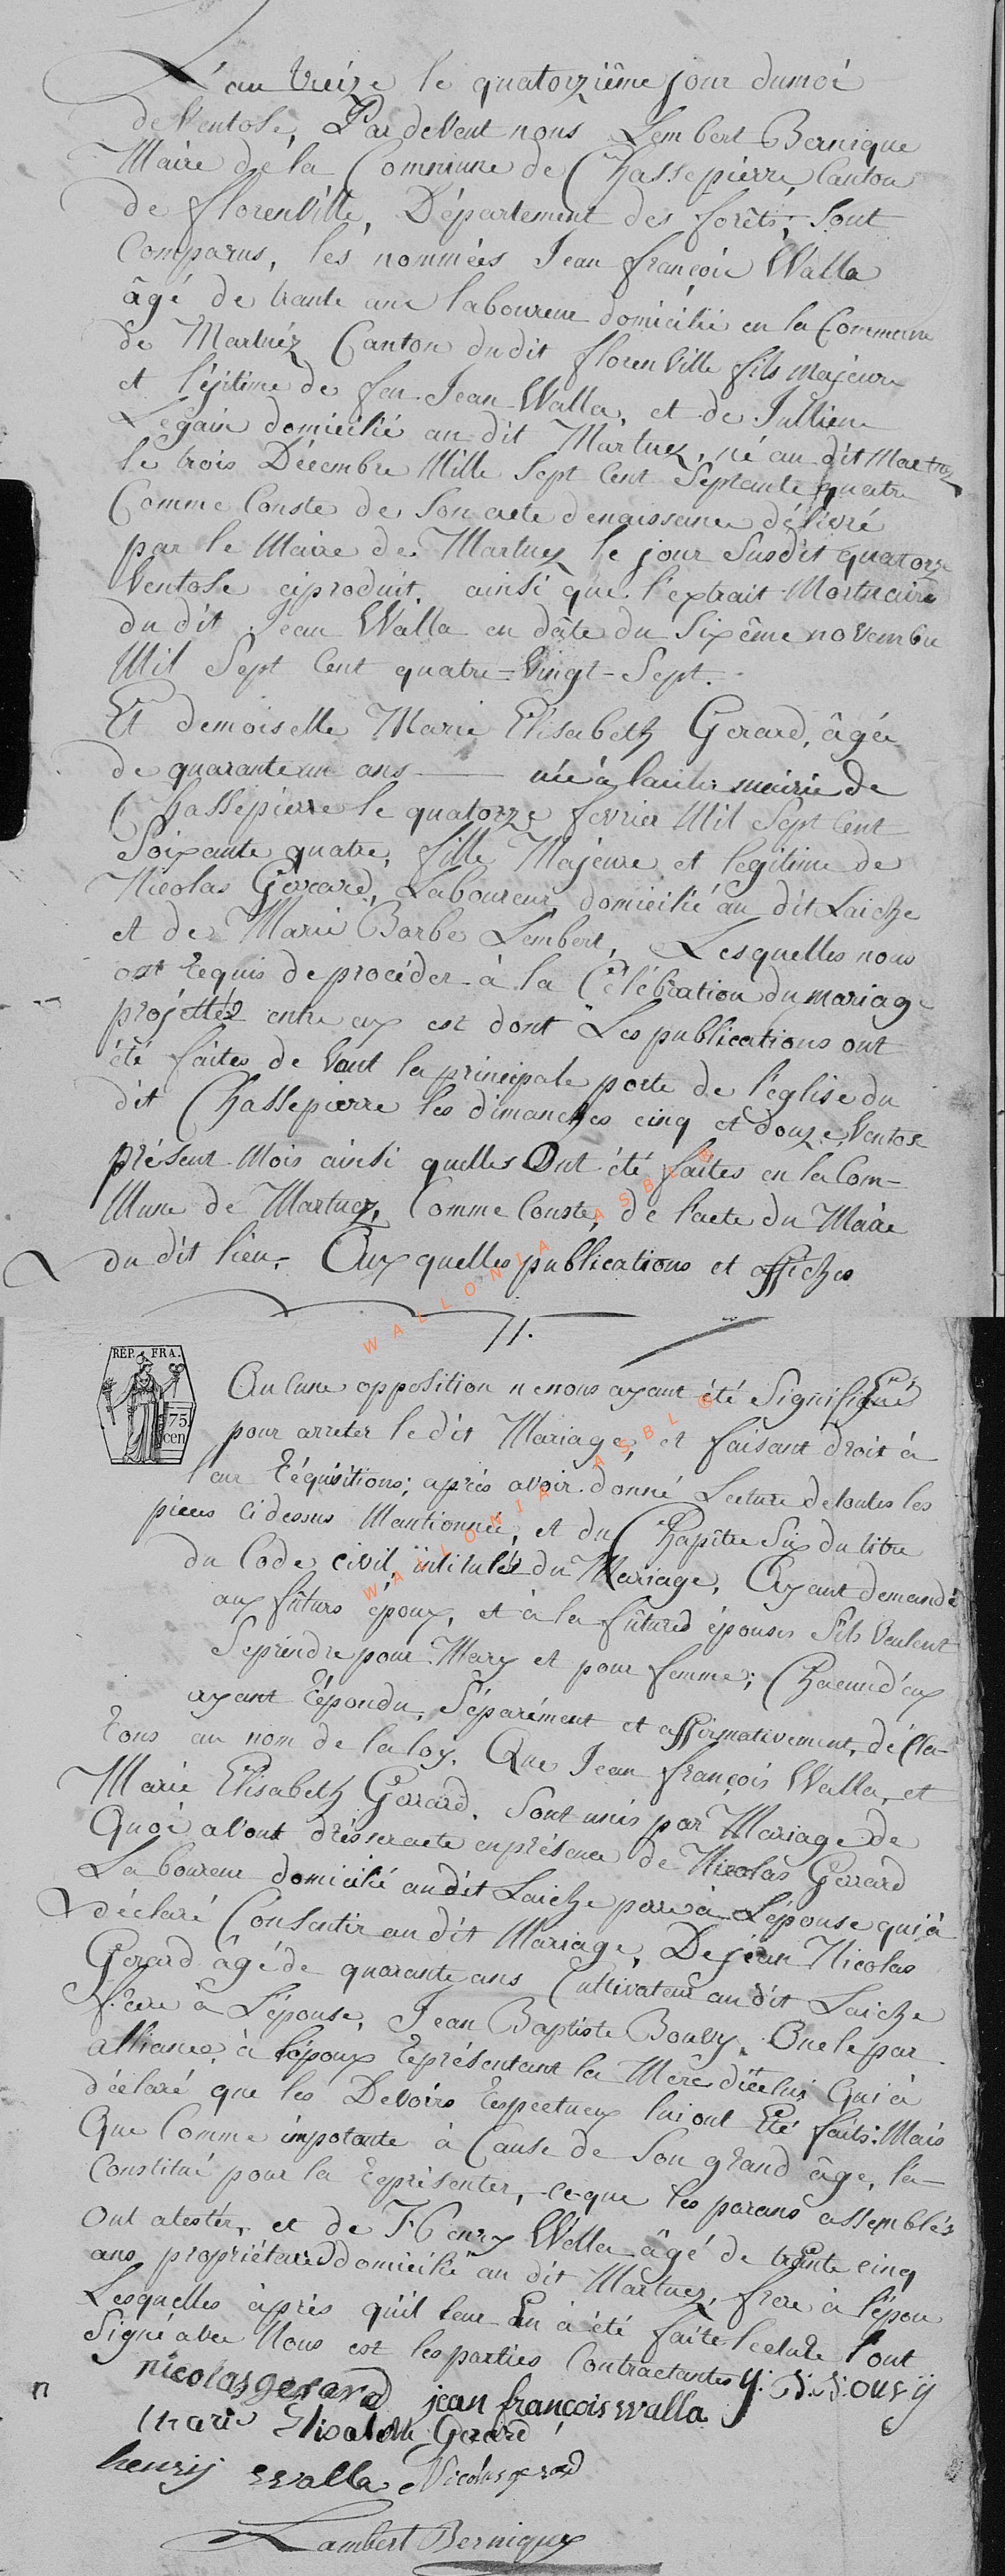 L'an treize le quatorzième jour du moi
de Ventose, Par deVent nous Lembert Bernique
Maire de la Commune de Chassepierre Canton
de florenville, Département des forêts, Sont
Comparus, les nommées Jean françois Walla
âgé de trante ans laboureur domicilié en la Commune
de Martuéz Canton du dit florenville fils majeur
et légitime de feu Jean Walla, et de Jullien
Legain domicilié au dit Martuez, né au dit Martuez
le trois Décembre Mille Sept Cent Septante quatre
Comme Conste de Son acte de naissance délivré
par le Maire de Martuez le jour Susdit quatorze
Ventose ciproduit, ainsi que l'extrait Mortuaire
du dit Jean Walla en dâte du Sixême novembre
Mil Sept Cent quatre-Vingt-Sept.
Et demoiselle Marie Elisabeth Gerard, âgée
de quarante un ans née à laiche mairie de
Chassepierre le quatorze fevrier Mil Sept Cent
Soixante quatre, fille Majeure et legitime de
Nicolas Gerard, Laboureur domicilié au dit Laiche
et de Marie Barbe Lembert, Lesquelles nous
ont Requis de procéder à la Célébration du mariage
projettés entre eux est dont Les publications ont
été faites de Vant la principale porte de l'église du
dit Chassepierre les dimanches cinq et douze Ventose
présent Mois ainsi quelles Ont été faites en la Com-
Mune de Martuez, Comme Conste, de l'acte du Maire
du dit lieu. Aux quelles publications et affiches
71.
REP. FRA.
75
cen
Aucune opposition ne nous ayant été Signifiéé
pour arreter le dit Mariage, et faisant droit à
leur Réquisitions; après avoir donné Lecture de toutes les
pieces Cidessus Mantionnée, et du Chapitre Six du titre
du Code civil, intitulés du Mariage, Ayant demandé
aux fûturs époux, et à la fûture épouse S'ils Veulent
Se prendre pour Mary et pour femme; Chacun d'eux
ayant Répondu, Séparément et affirmativement, décla-
rons au nom de la loy. Que Jean françois Walla, et
Marie Elisabeth Gerrard, Sont unis par Mariage de
Quoi avont dresser acte en présence de Nicolas Gerrard
Laboureur domicilié au dit Laiche pere à L'épouse qui à
déclaré Consentir au dit Mariage, De jean Nicolas
Gerard âgé de quarante ans Cultivateur au dit Laiche
frere à L'épouse, Jean Baptiste Bouvy, Oncle par
alliance, à l'époux Représentant la Mère d'icelui Qui à
déclaré que les Devoirs Respectueux lui ont Eté faits: Mais
Que Comme impotante à Cause de Son grand âge, l'a
Constitué pour la Représenter, ce que les parans assemblés
Ont atester, et de Henry Walla âgé de trente cinq
ans propriétaire domicilié au dit Martuez, frere à l'époux
Lesquelles après qu'il leur En à été faite lecture l'ont
Signé avec Nous est les parties Contractantes J. B. Bouvy
nicolas gerard jean françois walla
Marie Elisabeth Gerard
henrij walla Nicolas gerard
Lambert Bernique
WALLONIA ASBL ©
WALLONIA ASBL ©